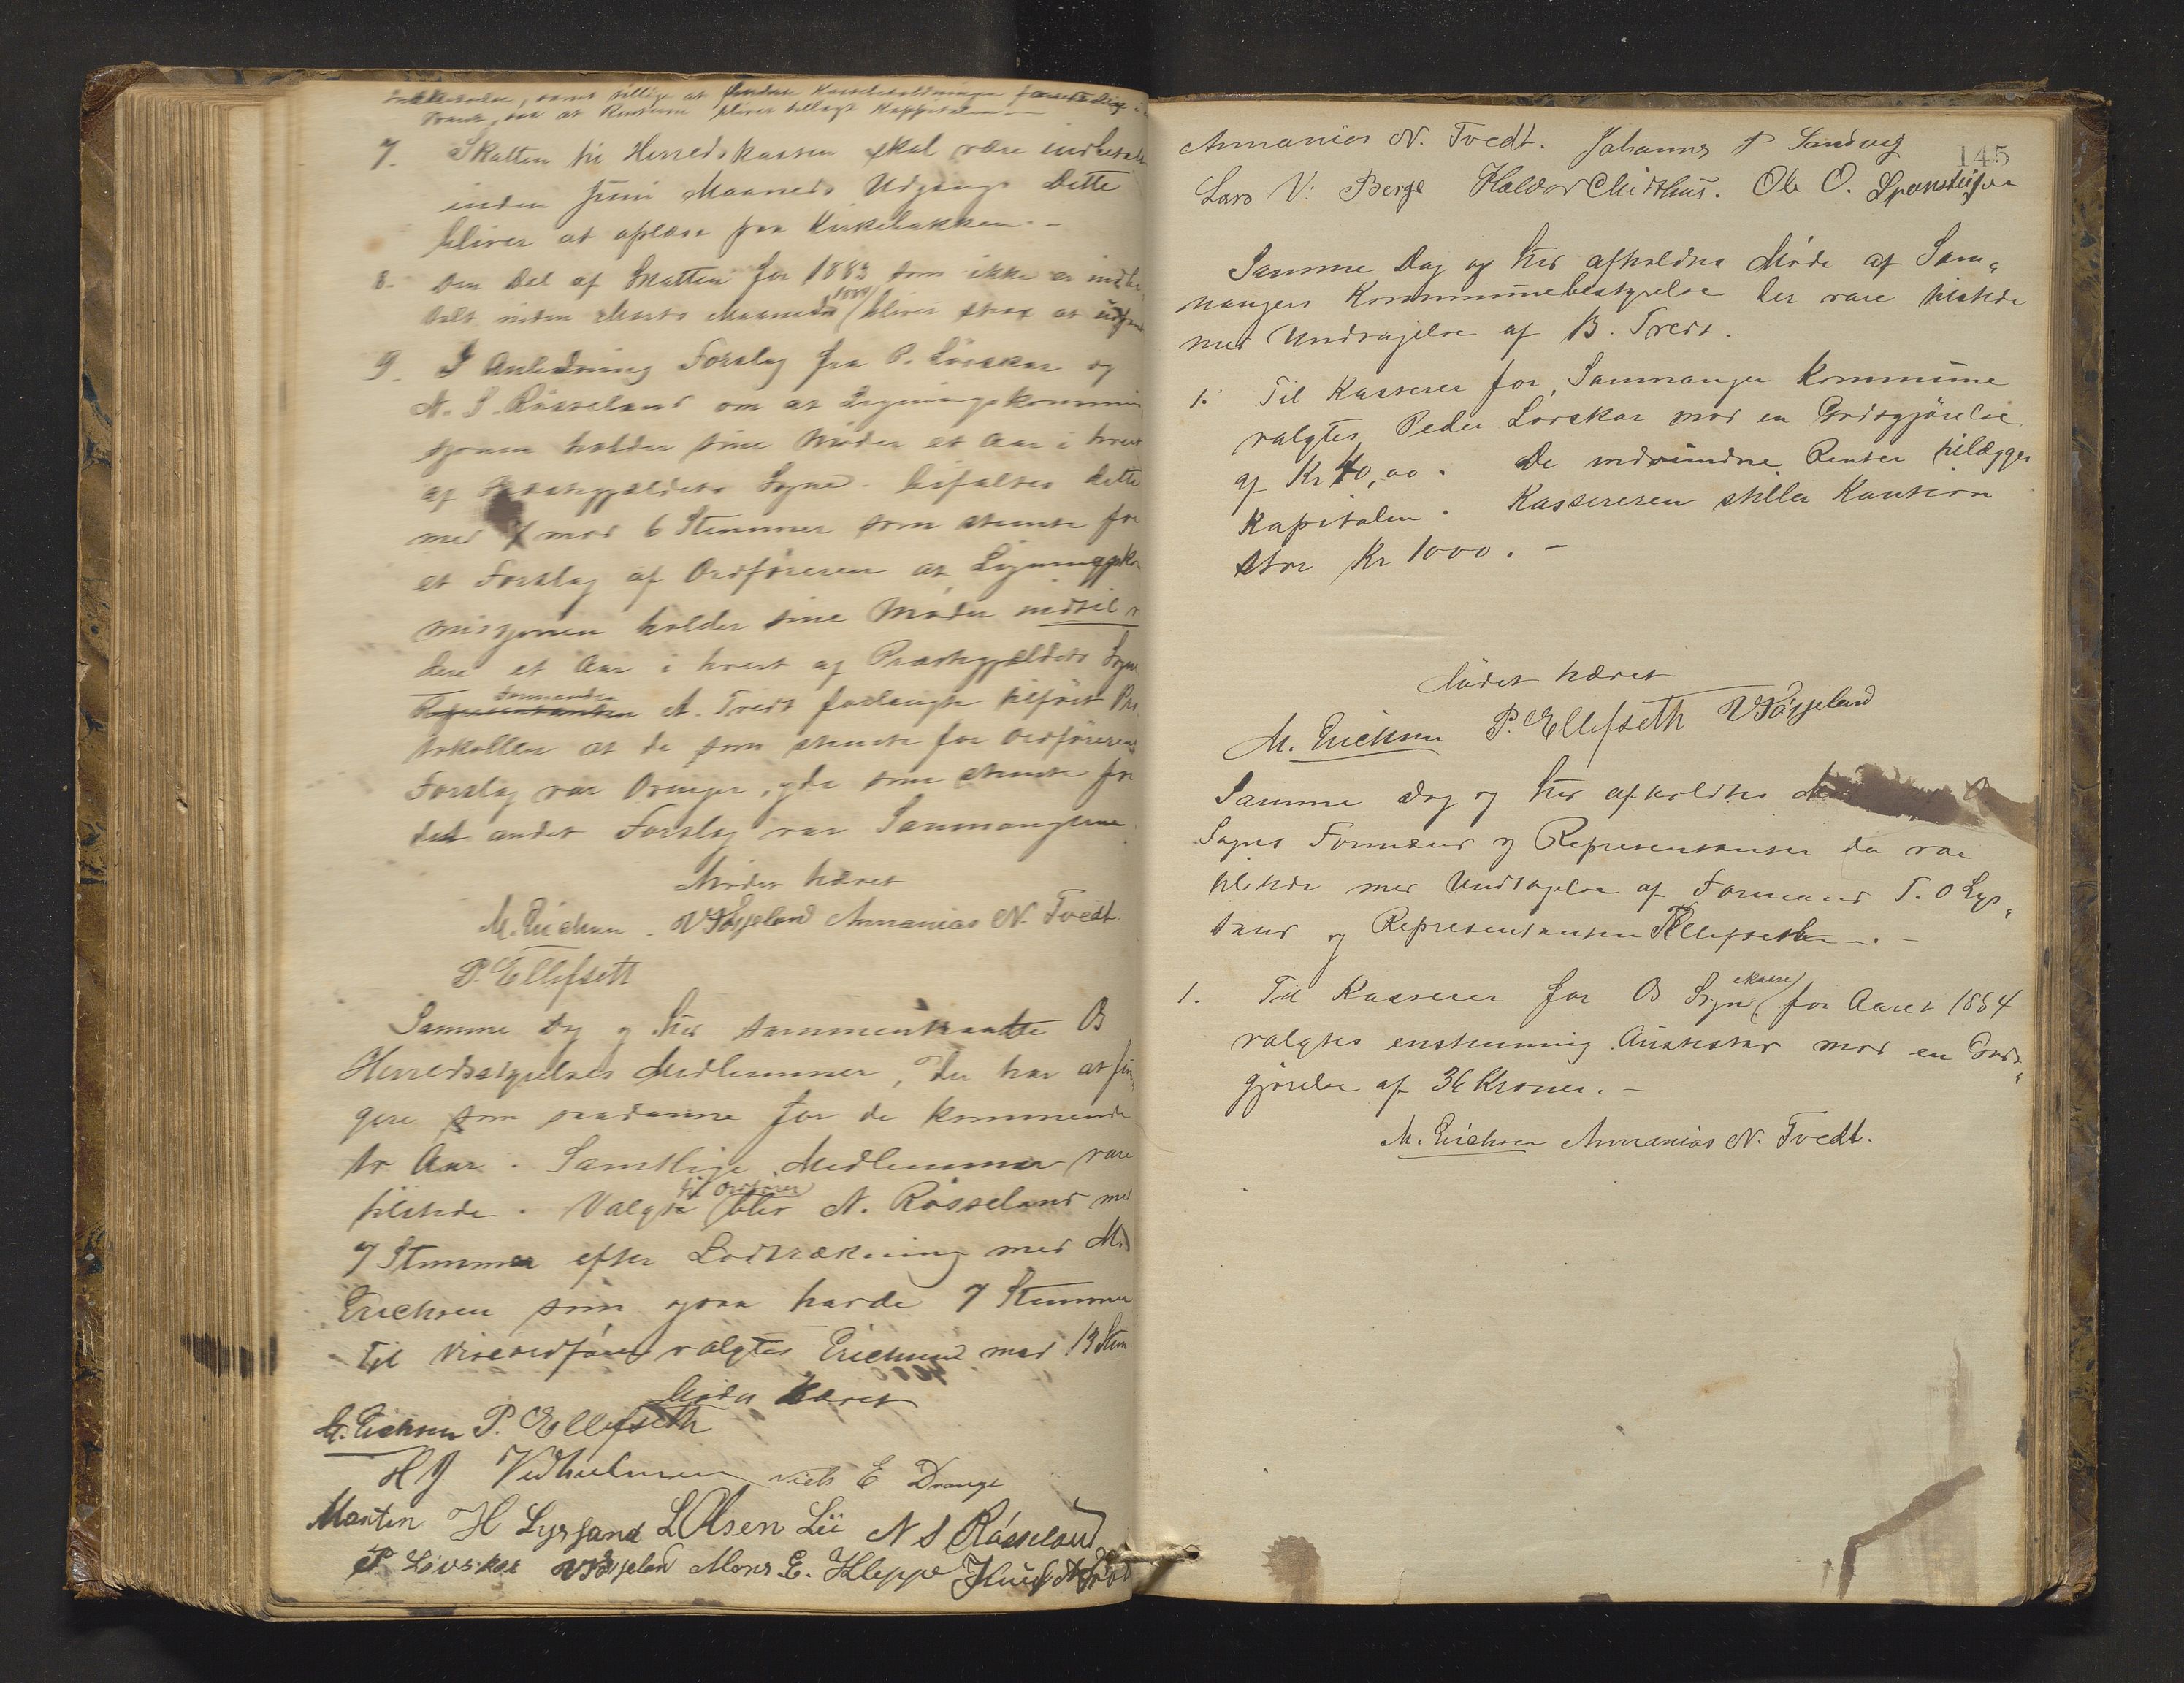 samt tillige at Kassebeholdningen
saa at Renterne bliver tillagt Kappitalen
7. Skatten til Herredskassen skal være indbetalt
inden Juni Maaneds Udgang. Dette
bliver at oplæse paa Kirkebakken. –
8. Den Del af Skatten for 1883 som ikke er indbe
talt inden Marts Maaned 1884 bliver strax at
9. I Anledning Forslag fra P. Løvskar og
N. S. Røsseland om at Ligningskommis
sjonen holder sine Møder et Aar i hvert
af Præstegjældets Sogne. bifaltes dette
med 7 mod 6 Stemmer som stemte for
et Forslag af Ordføreren at Ligningsko
missjonen holder sine Møder indtil v
dere et Aar i hvert af Præstegjældets Sogne
Representanten Formanden A. Tvedt forlangte tilført Pro
tokollen at de som stemte for Ordførerens
Forslag var Osinger, og de som stemte for
det andet Forslag var Samnangerne.
Mødet hævet
M. Erichsen. V Røsseland Annanias N. Tvedt
P. Ellefseth
Samme Dag og Sted sammentraadte Os
Herredsstyrelses Medlemmer, der har at fun
gere som saadanne for de kommende
to Aar. Samtlige Medlemmer vare
tilstede. Valgt til Ordfører blev N. Røsseland med
7 Stemmer efter Lodtrækning med M.
Erichsen som ogsaa havde 7 Stemmer
Til Viceordfører valgtes Erichsen med 13 Stem.
Mødet hævet
M. Erichsen P. Ellefseth
H J Vidhielmsen Niels E Drange
Martin H Lyssand L Olsen Lii N S Røsseland
P Løvskar V Røsseland Mons E. Kleppe Knud
Annanias N. Tvedt. Johannes P Sandvig 145
Lars V. Berge Halvor Midthus. Ole O.
Samme Dag og Sted afholdtes Møde af Sam„
nangers Kommunebestyrelse der vare tilstede
med Undtagelse af B. Tvedt.
1. Til Kasserer for Samnanger Kommune
valgtes Peder Løvskar mod en Godtgjørelse
af Kr 40,00. De indvundne Renter tillægges
Kapitalen. Kassereren stiller Kaution
stor Kr 1000. –
Mødet hævet
M. Erichsen P. Ellefseth V Røsseland
Samme Dag og Sted afholdtes
Sogns Formænd og Representanter da var
tilstede med Undtagelse af Formand T. O Lys„
sand og Representanten P Ellefseth –. –
1. Til Kasserer for Os Sognekasse for Aaret 1884
valgtes enstemmig Austestad mod en Godt„
gjørelse af 36 Kroner. –
M. Erichsen Annanias N. Tvedt.